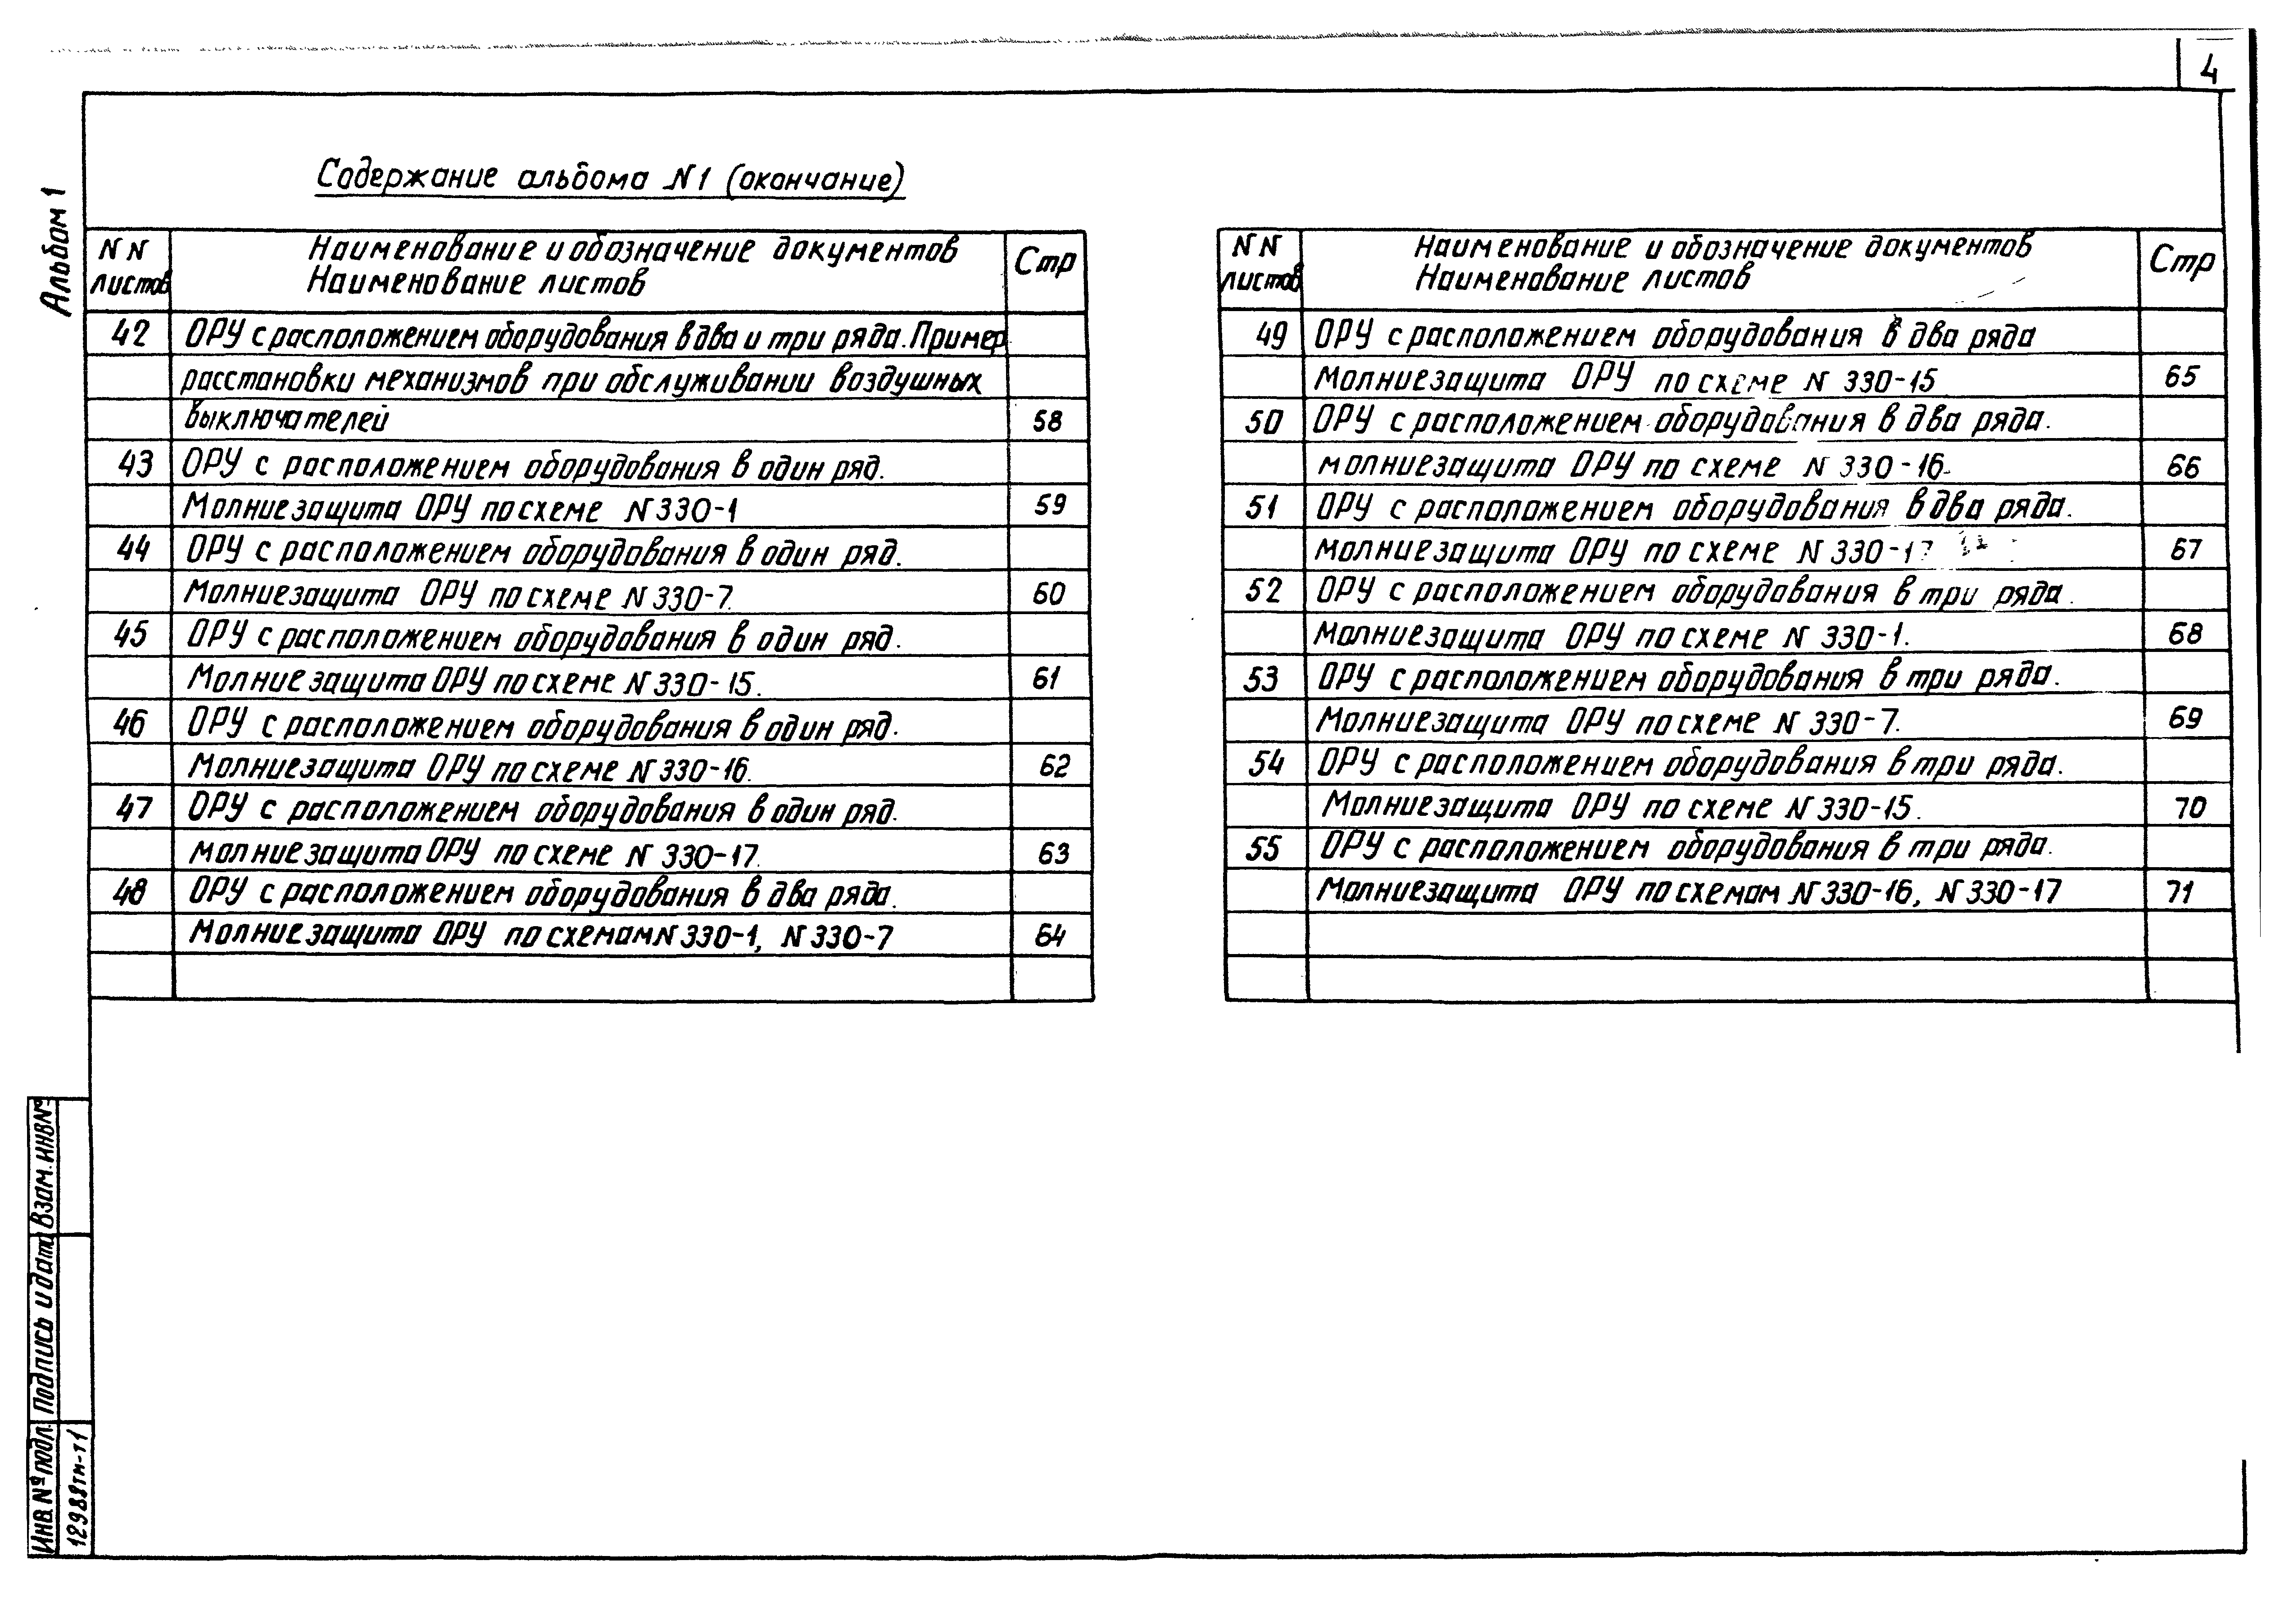 4
Альбом 1
Содержание альбома N1 (окончание)
NN листов
Наименование и обозначение документов
Наименование листов
Стр
42 ОРУ с расположением оборудования в два и три ряда. Пример
расстановки механизмов при обслуживании воздушных
выключателей 58
43 ОРУ с расположением оборудования в один ряд.
Молниезащита ОРУ по схеме N 330-1 59
44 ОРУ с расположением оборудования в один ряд.
Молниезащита ОРУ по схеме N 330-7. 60
45 ОРУ с расположением оборудования в один ряд.
Молниезащита ОРУ по схеме N 330-15. 61
46 ОРУ с расположением оборудования в один ряд.
Молниезащита ОРУ по схеме N 330-16. 62
47 ОРУ с расположением оборудования в один ряд.
молниезащита ОРУ по схеме N 330-17. 63
48 ОРУ с расположением оборудования в два ряда.
Молниезащита ОРУ по схемам N 330-1, N 330-7 64
NN листов
Наименование и обозначение документов
Наименование листов
Стр
49 ОРУ с расположением оборудования в два ряда
Молниезащита ОРУ по схеме N 330-15 65
50 ОРУ с расположением оборудования в два ряда.
молниезащита ОРУ по схеме N 330-16. 66
51 ОРУ с расположением оборудования в два ряда.
молниезащита ОРУ по схеме N 330-17 67
52 ОРУ с расположением оборудования в три ряда.
Молниезащита ОРУ по схеме N 330-1. 68
53 ОРУ с расположением оборудования в три ряда.
Молниезащита ОРУ по схеме N 330-7. 69
54 ОРУ с расположением оборудования в три ряда.
Молниезащита ОРУ по схеме N 330-15. 70
55 ОРУ с расположением оборудования в три ряда.
Молниезащита ОРУ по схемам N 330-16, N 330-17 71
Взам. инв №
Подпись и дата
Инв № подл.
12988тм-т1